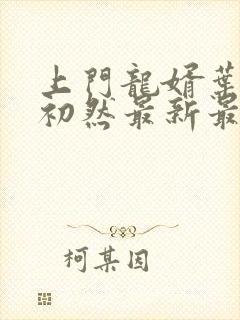 上門龍婿葉
初然最新最
柯某因